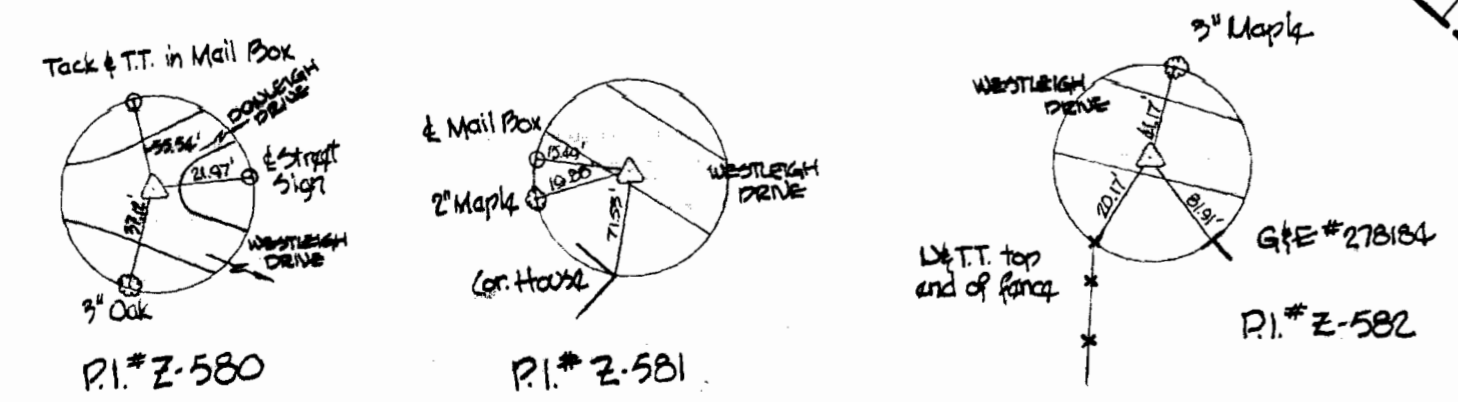 Tack & T.T. in Mail Box
DONLEIGH
DRIVE
55.54'
21.97'
℄ Street
Sign
WESTLEIGH
DRIVE
3" Oak
P.I.# Z-580
℄ Mail Box
15.49'
2" Maple
71.55'
Cor. House
WESTLEIGH
DRIVE
P.I.# Z-581
3" Maple
WESTLEIGH
DRIVE
20.17'
81.91'
G&E #278184
N&T.T. top
end of fence
P.I.# Z-582